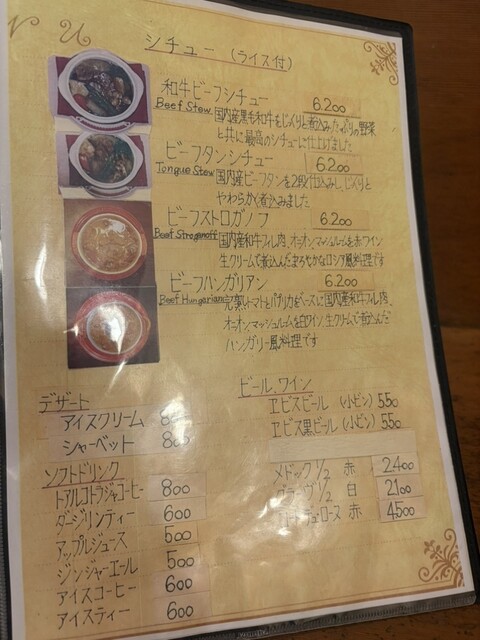 NU
シチュー (ライス付)
和牛ビーフシチュー 6.200
Beef Stew 国内産黒毛和牛をじっくりと煮込みたっぷりの野菜
と共に最高のシチューに仕上げました
ビーフタンシチュー 6.200
Tongue Stew 国内産ビーフタンを2段仕込みし、じっくりと
やわらかく煮込みました
ビーフストロガノフ 6.200
Beef Stroganoff 国内産和牛フィレ肉、オニオン、マッシュルームを赤ワイン
生クリームで煮込んだまろやかなロシア風料理です
ビーフハンガリアン 6.200
Beef Hungarian 完熟トマトとパプリカをベースに国内産和牛フィレ肉、
オニオン、マッシュルームを白ワイン、生クリームで煮込んだ
ハンガリー風料理です
デザート
アイスクリーム 800
シャーベット 800
ソフトドリンク
トアルコトラジャコーヒー 800
ダージリンティー 600
アップルジュース 500
ジンジャーエール 500
アイスコーヒー 600
アイスティー 600
ビール、ワイン
エビスビール (小ビン) 550
エビス黒ビール (小ビン) 550
メドック 1/2 赤 2.400
グラーヴ 1/2 白 2.100
コート・デュ・ローヌ 赤 4.500